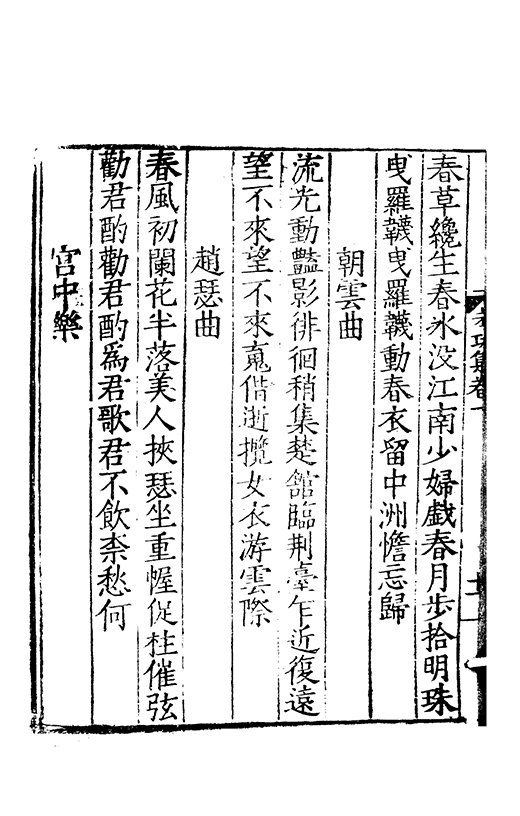 春草纔生春氷没江南少婦戯春月步拾明珠
曳羅韈曳羅韈動春衣留中洲憺忘歸
朝雲曲
流光動豔影徘徊稍集楚館臨荆臺乍近復遠
望不來望不來䰟偕逝攬女衣游雲際
趙瑟曲
春風初闌花半落美人挾瑟坐重幄促柱催弦
勸君酌勸君酌爲君歌君不飲柰愁何
宫中樂